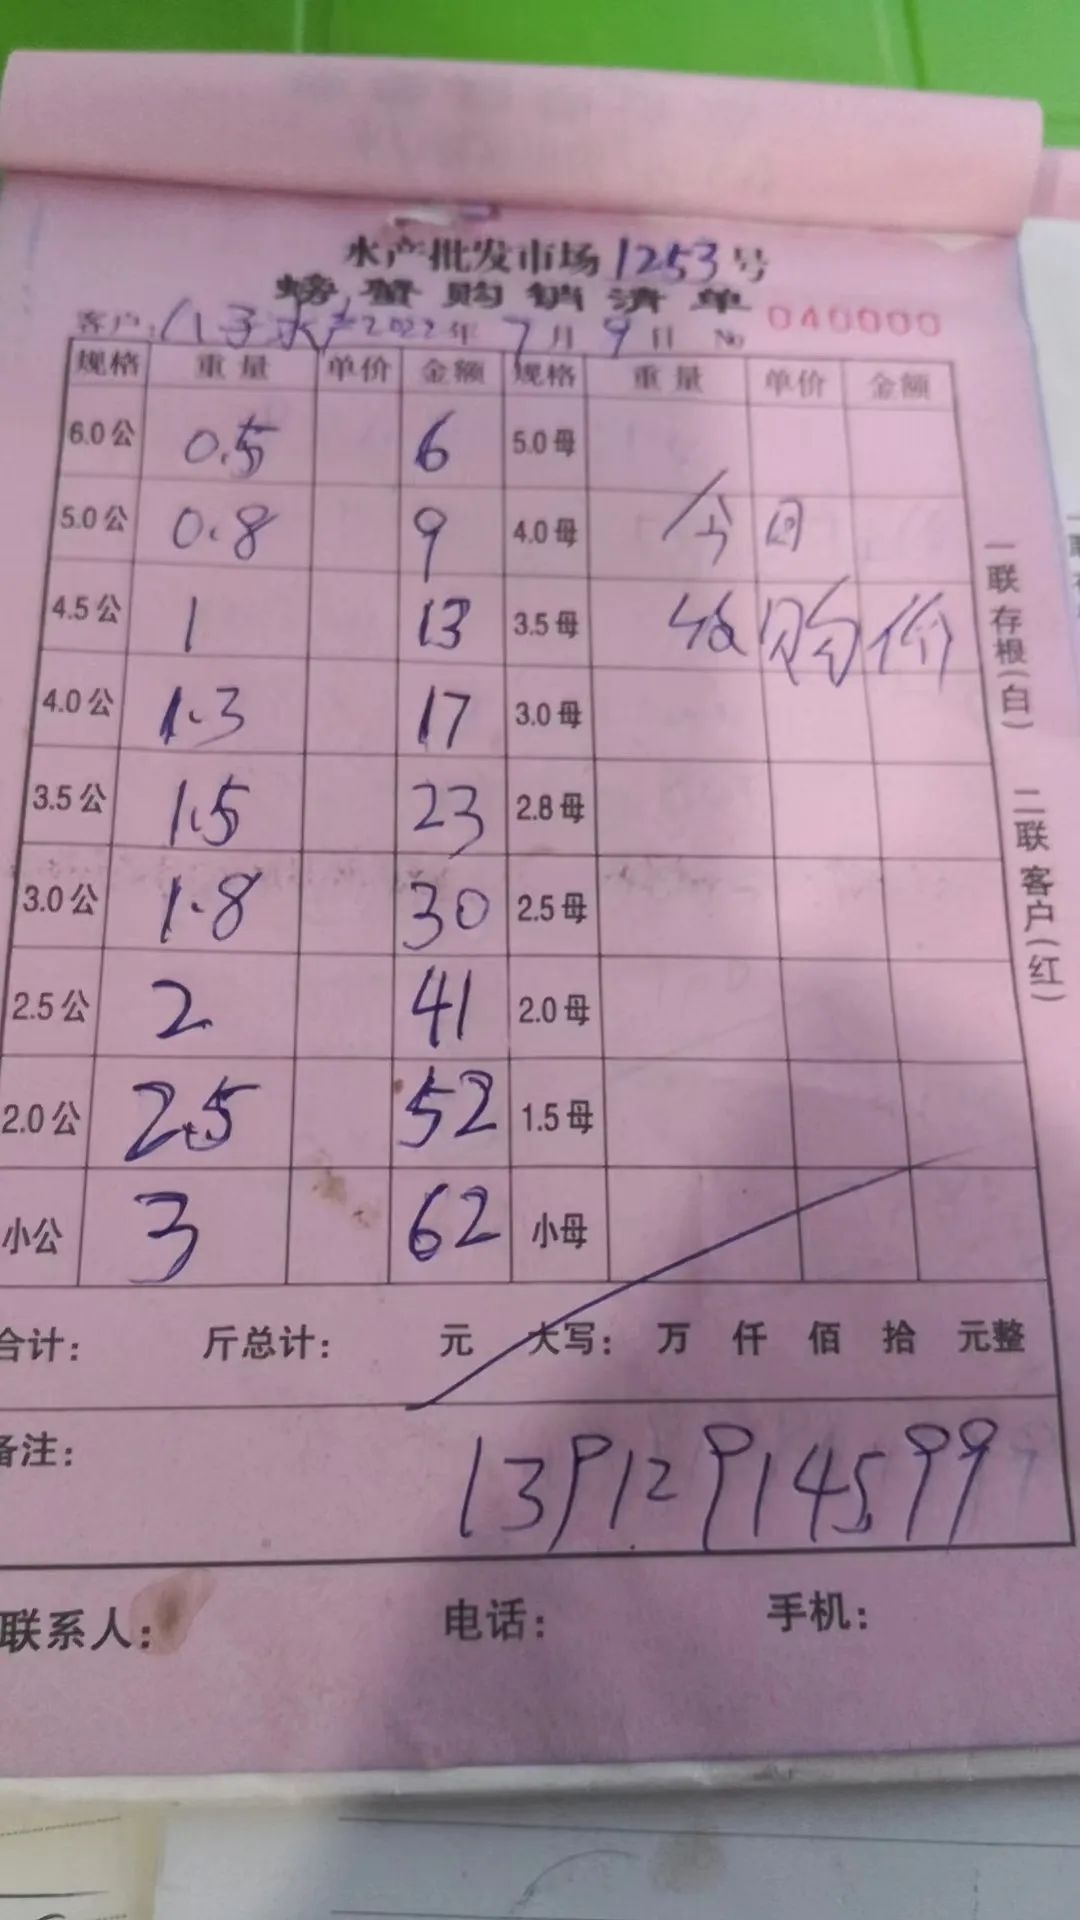 水产批发市场1253号
螃蟹购销清单
客户:八子水产2022年7月9日 No 040000
规格 重量 单价 金额 规格 重量 单价 金额
6.0公 0.5 6 5.0母
5.0公 0.8 9 4.0母 今日
4.5公 1 13 3.5母 收购价
4.0公 1.3 17 3.0母
3.5公 1.5 23 2.8母
3.0公 1.8 30 2.5母
2.5公 2 41 2.0母
2.0公 2.5 52 1.5母
小公 3 62 小母
合计: 斤总计: 元 大写: 万 仟 佰 拾 元整
备注: 13912914599
联系人: 电话: 手机:
一联存根(白) 二联客户(红)